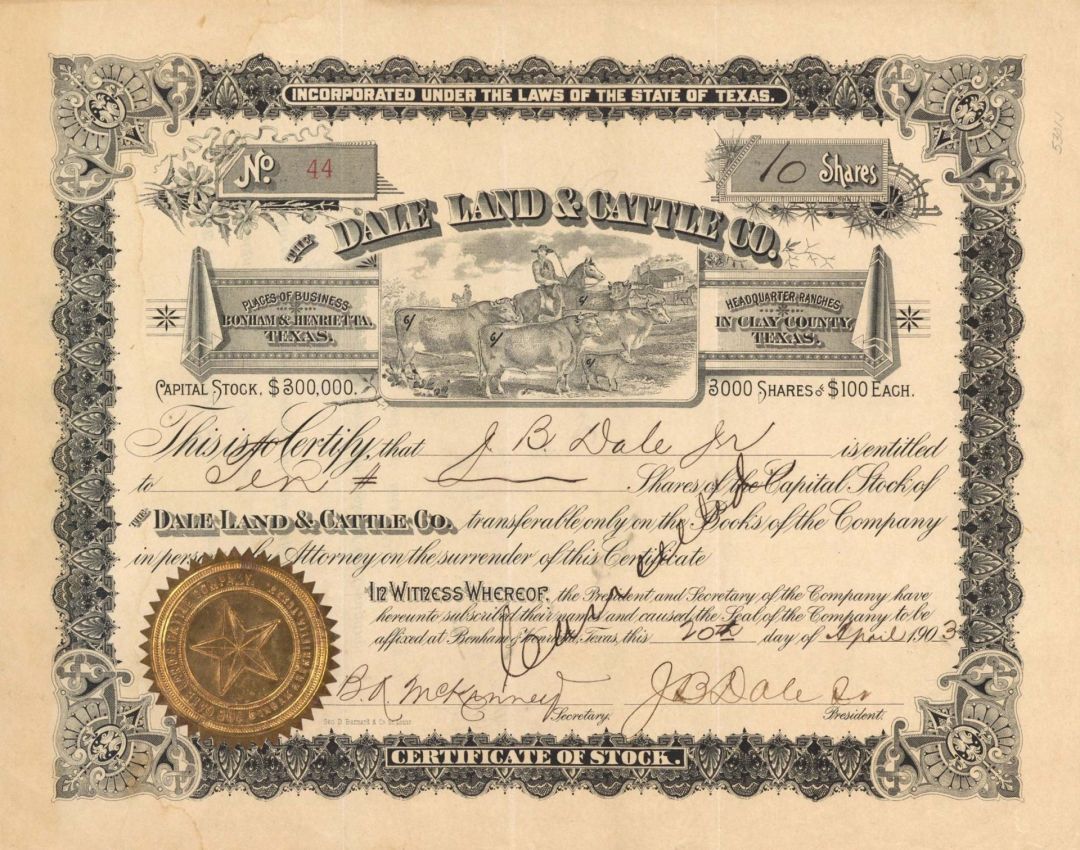 INCORPORATED UNDER THE LAWS OF THE STATE OF TEXAS.
No. 44
10 Shares
THE DALE LAND & CATTLE CO.
PLACES OF BUSINESS
BONHAM & HENRIETTA,
TEXAS.
HEADQUARTER RANCHES
IN CLAY COUNTY,
TEXAS.
CAPITAL STOCK, $300,000.
3000 SHARES of $100 EACH.
This is to Certify, that J B Dale Jr is entitled
to Ten # Shares of the Capital Stock of
THE DALE LAND & CATTLE CO. transferable only on the Books of the Company
in person or by Attorney on the surrender of this Certificate
Cancelled
IN WITNESS WHEREOF, the President and Secretary of the Company have
hereunto subscribed their names and caused the Seal of the Company to be
affixed at Bonham & Henrietta, Texas, this 20th day of April 1903
B. A. McKinney
Secretary.
J B Dale Sr
President.
Geo D Barnard & Co St Louis
CERTIFICATE OF STOCK.